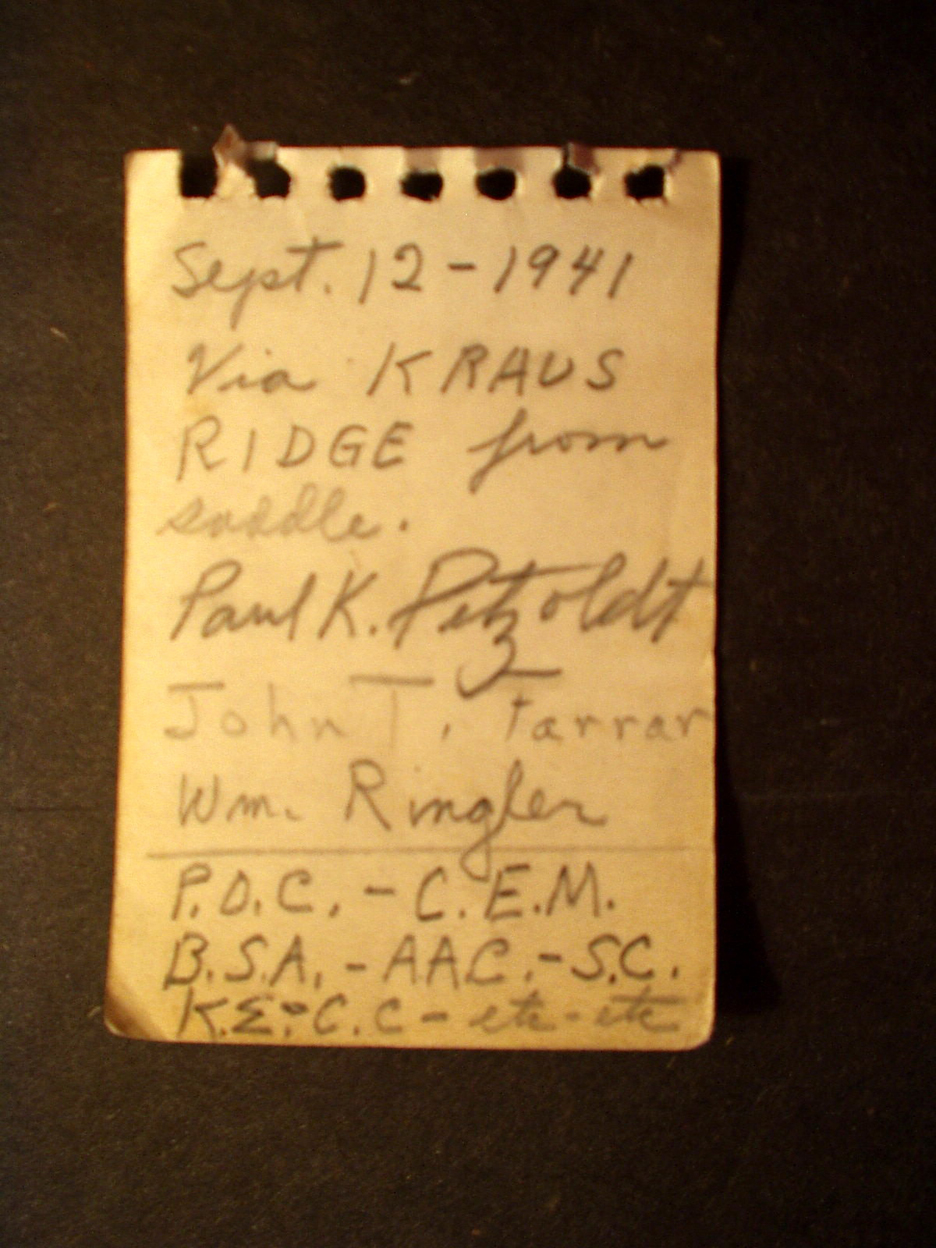 Sept. 12 - 1941
Via KRAUS
RIDGE from
saddle.
Paul K. Petzoldt
John T. Farrar
Wm. Ringler
P.O.C. - C.E.M.
B.S.A. - AAC. - S.C.
C.C - etc - etc